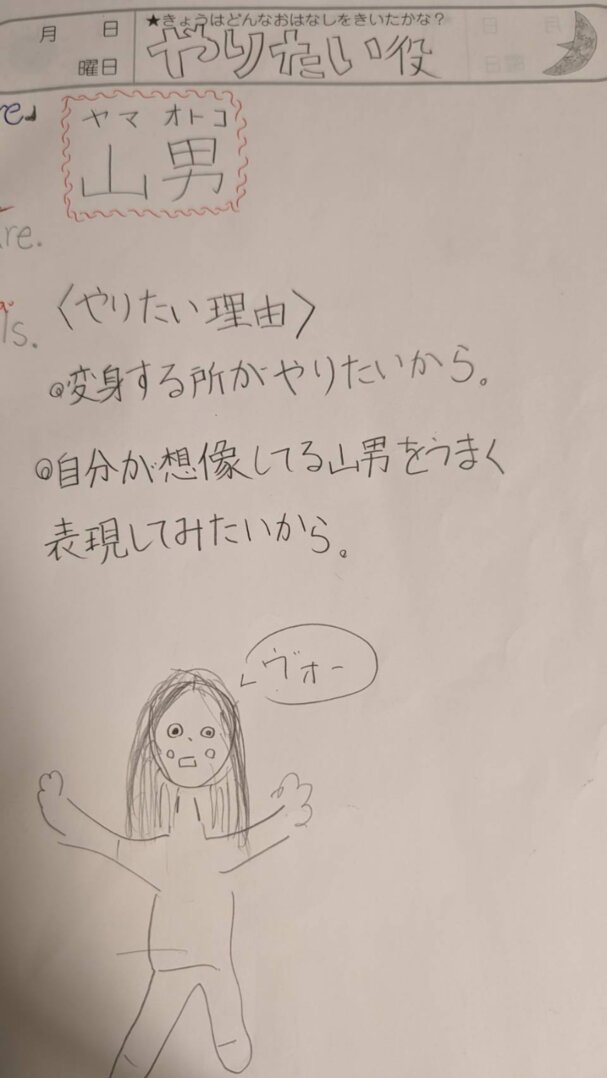 月 日
曜日
★きょうはどんなおはなしをきいたかな?
やりたい役
re.
ヤマ オトコ
山男
re.
ls.
〈やりたい理由〉
◎変身する所がやりたいから。
◎自分が想像してる山男をうまく
表現してみたいから。
ヴォー